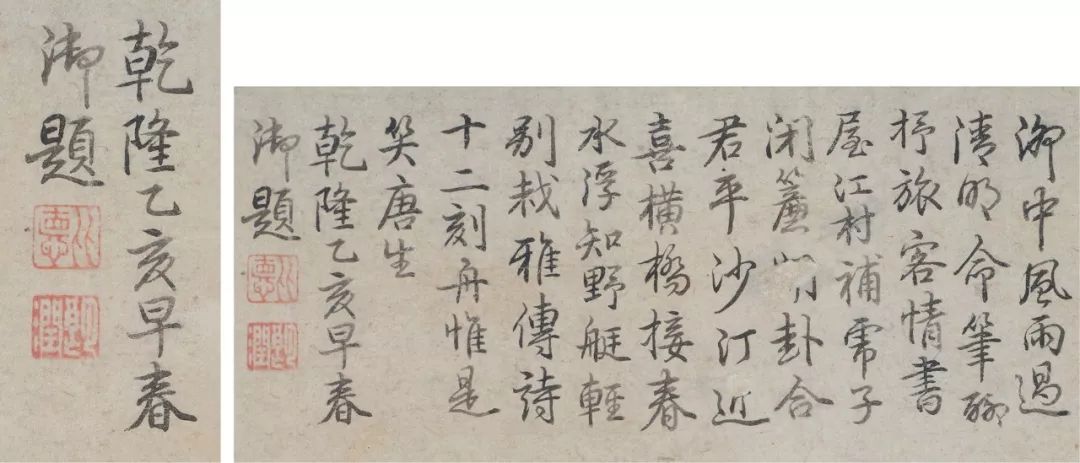 乾隆乙亥早春
御題
比德
朗潤
泖中風雨過
清明命筆聊
抒旅客情書
屋江村補子
閉簾卦合
君平沙汀近
喜橫橋接春
水浮知野艇輕
別裁雅傳詩
十二刻舟惟是
笑唐生
乾隆乙亥早春
御題
比德
朗潤